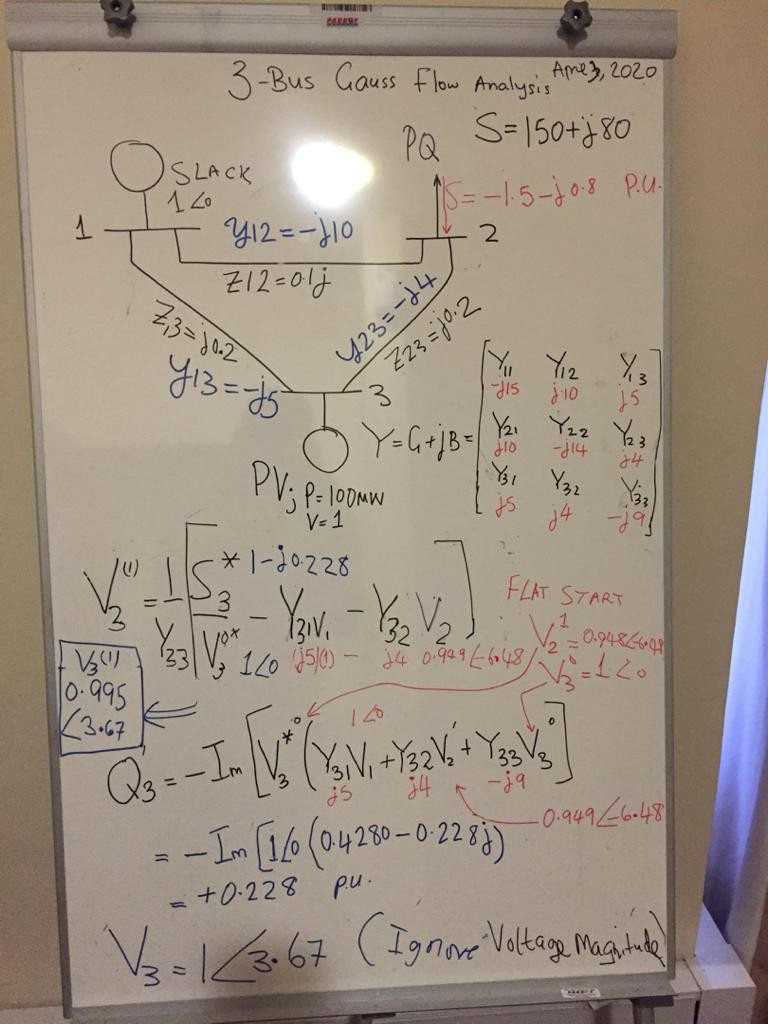 PARROT
3-Bus Gauss Flow Analysis
April 3, 2020
S=150+j80
PQ
SLACK
1∠0
S=-1.5-j0.8 P.U.
1
y12=-j10
2
Z12=0.1j
Z13=j0.2
y23=-j4
Z23=j0.2
y13=-j5
3
Y11 Y12 Y13
-j15 j10 j5
Y=G+jB=
Y21 Y22 Y23
j10 -j14 j4
Y31 Y32 Y33
j5 j4 -j9
PV; P=100MW
V=1
V3⁽¹⁾=1/Y33[S3*/V3⁰* - Y31V1 - Y32 V2]
1-j0.228
1∠0 (j5)(1) - j4 0.949∠-6.48
FLAT START
V2¹=0.948∠-6.48
V3⁰=1∠0
V3⁽¹⁾
0.995
∠3.67
1∠0
Q3=-Im[V3*⁰(Y31V1+Y32V2'+Y33V3⁰]
j5 j4 -j9
0.949∠-6.48
=-Im[1∠0(0.4280-0.228j)
=+0.228 p.u.
V3=1∠3.67 (Ignore Voltage Magnitude)